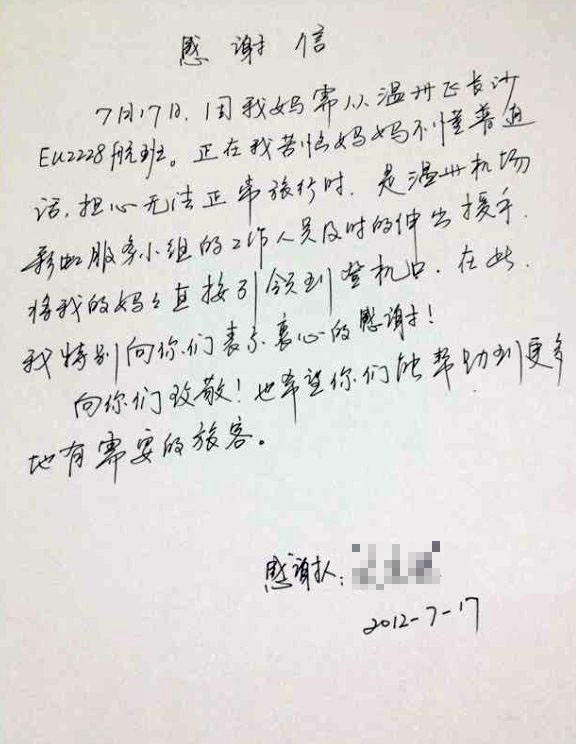 感谢信
7月17日,因我妈需从温州飞长沙
EU2228航班。正在我苦恼妈妈不懂普通
话,担心无法正常旅行时,是温州机场
彩虹服务小组的工作人员及时的伸出援手,
将我的妈妈直接引领到登机口,在此,
我特别向你们表示衷心的感谢!
向你们致敬!也希望你们能帮助到更多
地有需要的旅客。
感谢人:
2012-7-17